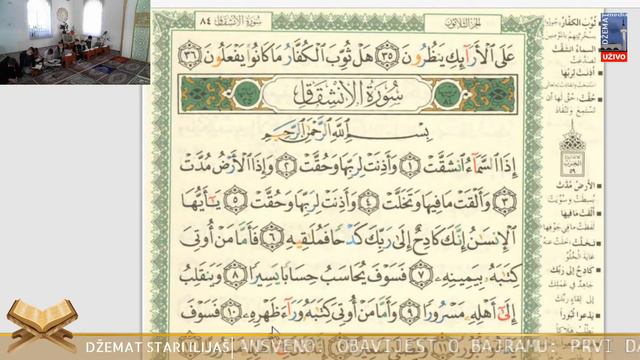 سُورَةُ الانشِقَاقِ ٨٤
الجُزْءُ الثَّلَاثُونَ
عَلَى ٱلْأَرَآئِكِ يَنظُرُونَ ٣٥ هَلْ ثُوِّبَ ٱلْكُفَّارُ مَا كَانُوا۟ يَفْعَلُونَ ٣٦
سُورَةُ الانشِقَاقِ
بِسْمِ ٱللَّهِ ٱلرَّحْمَٰنِ ٱلرَّحِيمِ
إِذَا ٱلسَّمَآءُ ٱنشَقَّتْ ١ وَأَذِنَتْ لِرَبِّهَا وَحُقَّتْ ٢ وَإِذَا ٱلْأَرْضُ مُدَّتْ
٣ وَأَلْقَتْ مَا فِيهَا وَتَخَلَّتْ ٤ وَأَذِنَتْ لِرَبِّهَا وَحُقَّتْ ٥ يَٰٓأَيُّهَا
ٱلْإِنسَٰنُ إِنَّكَ كَادِحٌ إِلَىٰ رَبِّكَ كَدْحًا فَمُلَٰقِيهِ ٦ فَأَمَّا مَنْ أُوتِىَ
كِتَٰبَهُۥ بِيَمِينِهِۦ ٧ فَسَوْفَ يُحَاسَبُ حِسَابًا يَسِيرًا ٨ وَيَنقَلِبُ
إِلَىٰٓ أَهْلِهِۦ مَسْرُورًا ٩ وَأَمَّا مَنْ أُوتِىَ كِتَٰبَهُۥ وَرَآءَ ظَهْرِهِۦ ١٠ فَسَوْفَ
ثُوِّبَ الكُفَّارُ
السَّمَاءُ انْشَقَّتْ
أَذِنَتْ لِرَبِّهَا
حُقَّتْ
الأَرْضُ مُدَّتْ
أَلْقَتْ مَا فِيهَا
تَخَلَّتْ
كَادِحٌ إِلَى رَبِّكَ
يَدْعُو ثُبُورًا
DŽEMAT
UŽIVO
DŽEMAT STARI ILIJAŠ
ANSVENO! OBAVIJEST O BAJRAMU: PRVI DA